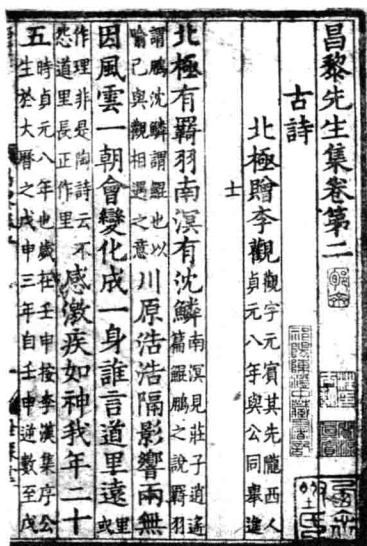 昌黎先生集卷第二
古詩
北極贈李觀觀字元賓其先隴西人貞元八年與公同舉進
士
北極有羇羽南溟有沈鱗南溟見莊子逍遙篇鯤鵬之說羇羽
謂鵬沈鱗謂鯤也以喻己與觀相遇之意川原浩浩隔影響兩無
因風雲一朝會變化成一身誰言道里遠里或
作理非是陶詩云不怨道里長正作里感激疾如神我年二十
五時貞元八年也歲在壬申按李漢集序公生於大曆之戊申三年自壬申逆數至戊